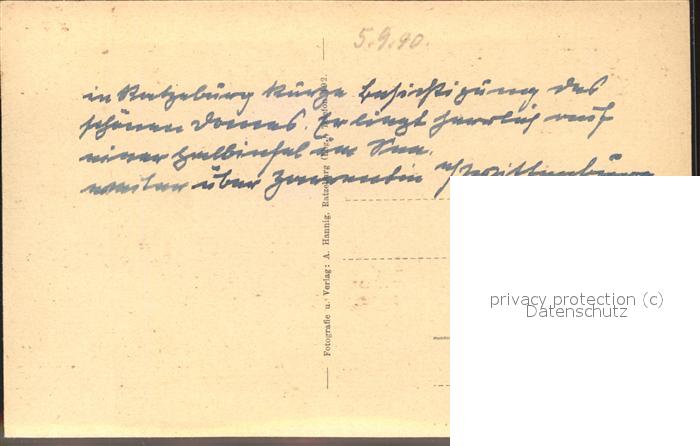 5.9.40.
in Ratzeburg kurze Besichtigung des
schönen Domes. Er liegt herrlich auf
einer Halbinsel im See.
weiter über Zarrentin, Wittenburg
Fotografie u. Verlag: A. Hannig, Ratzeburg
privacy protection (c)
Datenschutz